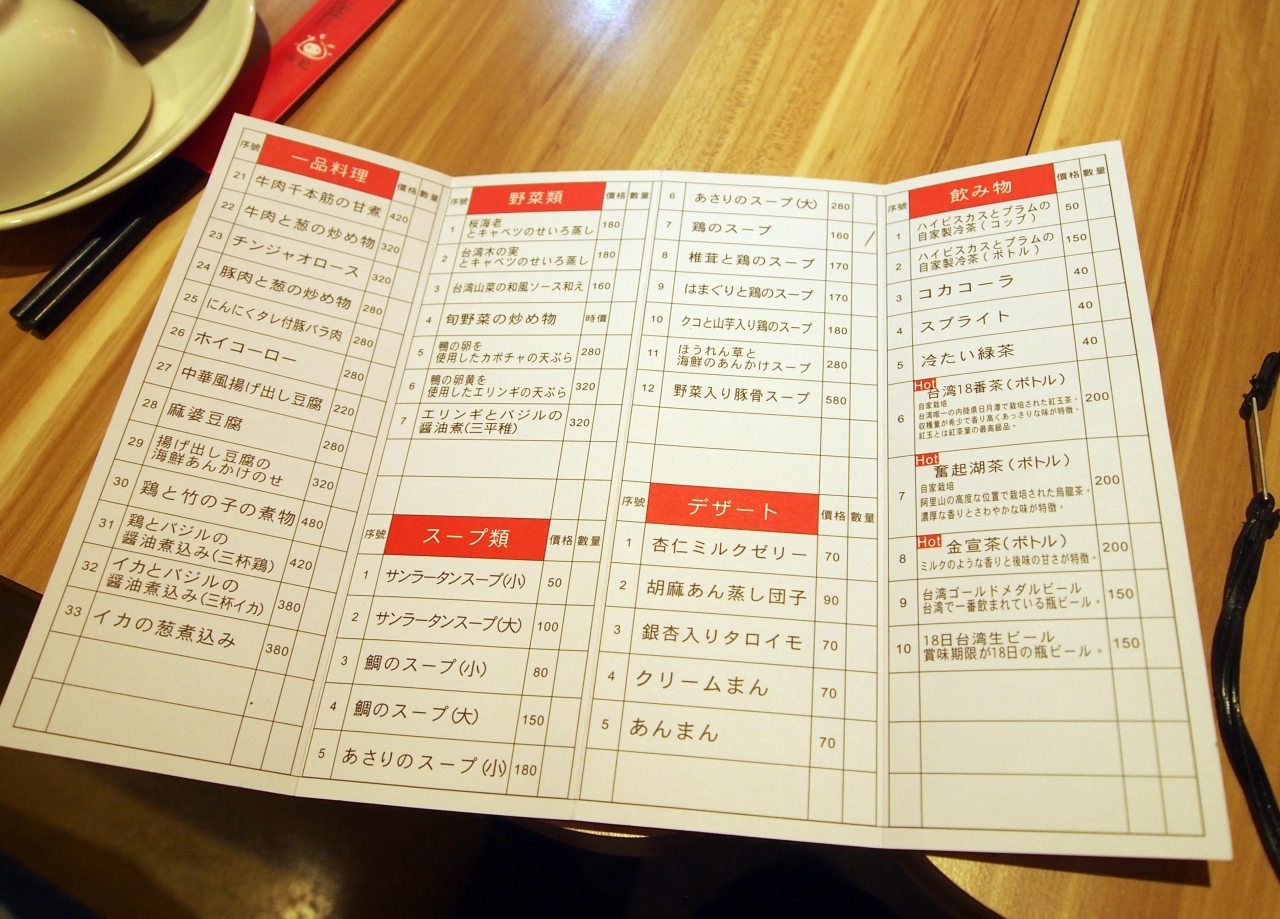 序號 一品料理 價格 數量
21 牛肉千本筋の甘煮 420
22 牛肉と葱の炒め物 320
23 チンジャオロース 320
24 豚肉と葱の炒め物 280
25 にんにくタレ付豚バラ肉 280
26 ホイコーロー 280
27 中華風揚げ出し豆腐 220
28 麻婆豆腐 280
29 揚げ出し豆腐の
海鮮あんかけのせ 320
30 鶏と竹の子の煮物 480
31 鶏とバジルの
醤油煮込み(三杯鶏) 420
32 イカとバジルの
醤油煮込み(三杯イカ) 380
33 イカの葱煮込み 380
序號 野菜類 價格 數量
1 桜海老
とキャベツのせいろ蒸し 180
2 台湾木の実
とキャベツのせいろ蒸し 180
3 台湾山菜の和風ソース和え 160
4 旬野菜の炒め物 時價
5 鴨の卵を
使用したカボチャの天ぷら 280
6 鴨の卵黄を
使用したエリンギの天ぷら 320
7 エリンギとバジルの
醤油煮(三平稚) 320
序號 スープ類 價格 數量
1 サンラータンスープ(小) 50
2 サンラータンスープ(大) 100
3 鯛のスープ(小) 80
4 鯛のスープ(大) 150
5 あさりのスープ(小) 180
6 あさりのスープ(大) 280
7 鶏のスープ 160 /
8 椎茸と鶏のスープ 170
9 はまぐりと鶏のスープ 170
10 クコと山芋入り鶏のスープ 180
11 ほうれん草と
海鮮のあんかけスープ 280
12 野菜入り豚骨スープ 580
序號 デザート 價格 數量
1 杏仁ミルクゼリー 70
2 胡麻あん蒸し団子 90
3 銀杏入りタロイモ 70
4 クリームまん 70
5 あんまん 70
序號 飲み物 價格 數量
1 ハイビスカスとプラムの
自家製冷茶(コップ) 50
2 ハイビスカスとプラムの
自家製冷茶(ボトル) 150
3 コカコーラ 40
4 スプライト 40
5 冷たい緑茶 40
6 Hot 台湾18番茶(ボトル) 200
自家栽培
台湾唯一の内陸県日月潭で栽培された紅玉茶。
収穫量が希少で香り高くあっさりな味が特徴。
紅玉とは紅茶葉の最高級品。
7 Hot 奮起湖茶(ボトル) 200
自家栽培
阿里山の高度な位置で栽培された烏龍茶。
濃厚な香りとさわやかな味が特徴。
8 Hot 金宣茶(ボトル) 200
ミルクのような香りと後味の甘さが特徴。
9 台湾ゴールドメダルビール
台湾で一番飲まれている瓶ビール。 150
10 18日台湾生ビール
賞味期限が18日の瓶ビール。 150